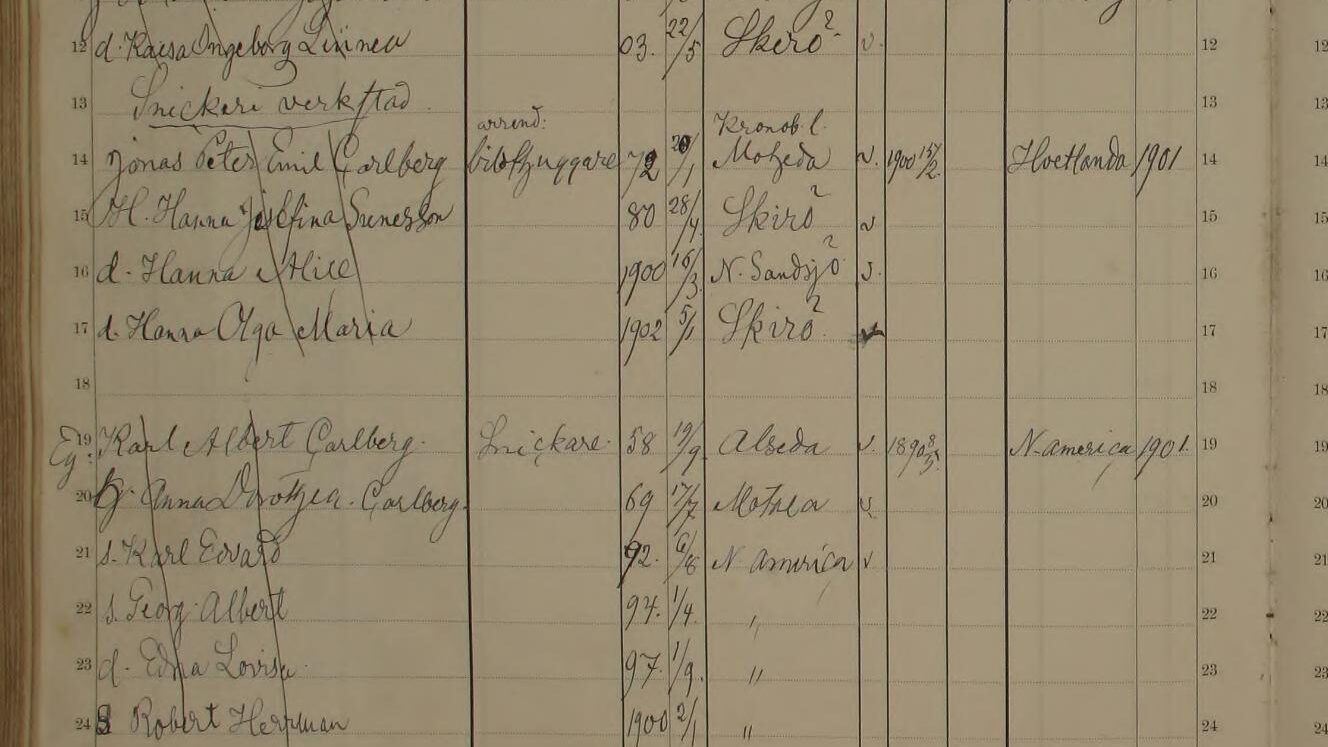 12 d. Kaisa Ingeborg Linnea 03. 22/5 Skirö v. 12
13 Snickeri verkstad 13
arrend: Kronob. l.
14 Jonas Peter Emil Carlberg bildthuggare 72 20/1 Motzeda v. 1900 15/2 Hvetlanda 1901 14
15 H. Hanna Josefina Sunesson 80 28/4 Skirö v 15
16 d. Hanna Alice 1900 16/3 N. Sandsjö v. 16
17 d. Hanna Olga Maria 1902 5/1 Skirö v 17
18 18
19 Eg: Karl Albert Carlberg. Snickare. 58 19/9 Alseda v. 18 N. america 1901. 19
20 Anna Dorothea. Carlberg. 69 17/7 v. 20
21 s. Karl Edvard 92. 6/8 N america v 21
22 s. Georg Albert 94. 1/4. " 22
23 d. Edna Lovisa 97. 1/9. " 23
24 S Robert Herrman 1900 2/1 " 24